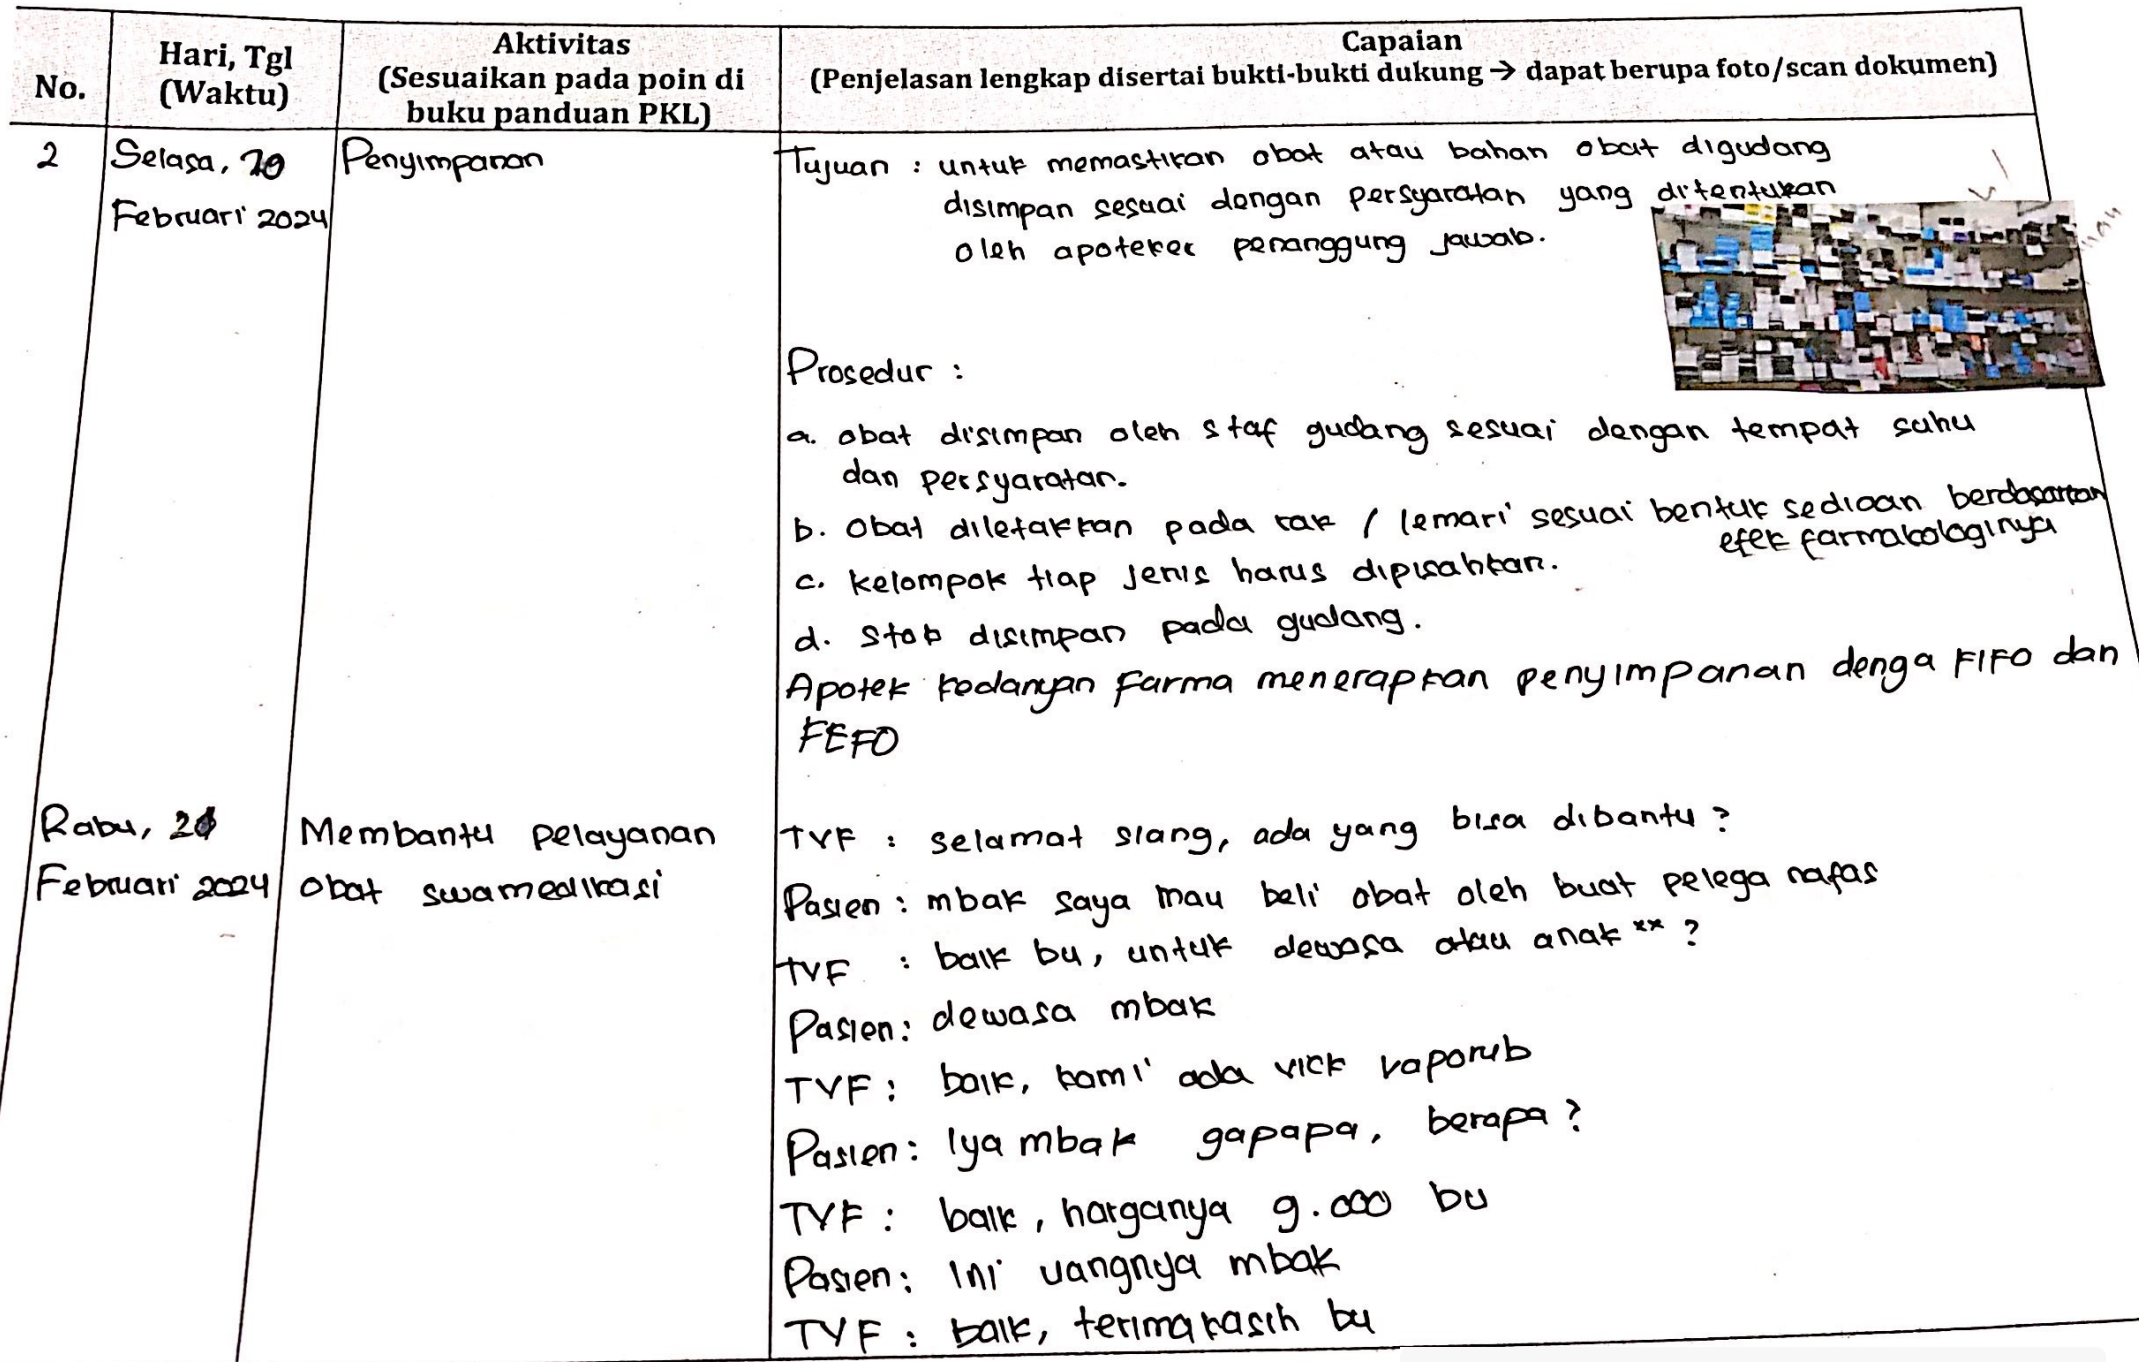 No.
Hari, Tgl
(Waktu)
Aktivitas
(Sesuaikan pada poin di
buku panduan PKL)
Capaian
(Penjelasan lengkap disertai bukti-bukti dukung → dapat berupa foto/scan dokumen)
2
Selasa, 20
Februari 2024
Penyimpanan
Tujuan : untuk memastikan obat atau bahan obat digudang
disimpan sesuai dengan persyaratan yang ditentukan
oleh apoteker penanggung jawab.
Prosedur :
a. obat disimpan oleh staf gudang sesuai dengan tempat suhu
dan persyaratan.
b. Obat diletakkan pada rak / lemari sesuai bentuk sediaan berdasarkan
efek farmakologinya
c. kelompok tiap jenis harus dipisahkan.
d. Stok disimpan pada gudang.
Apotek Kedangan Farma menerapkan penyimpanan denga FIFO dan
FEFO
Rabu, 21
Februari 2024
Membantu pelayanan
obat swamedikasi
TVF : selamat siang, ada yang bisa dibantu?
Pasien : mbak saya mau beli obat oleh buat pelega nafas
TVF : baik bu, untuk dewasa atau anak xx ?
Pasien : dewasa mbak
TVF : baik, kami ada vick vaporub
Pasien : Iya mbak gapapa, berapa?
TYF : baik, harganya 9.000 bu
Pasien : Ini uangnya mbak
TYF : baik, terimakasih bu